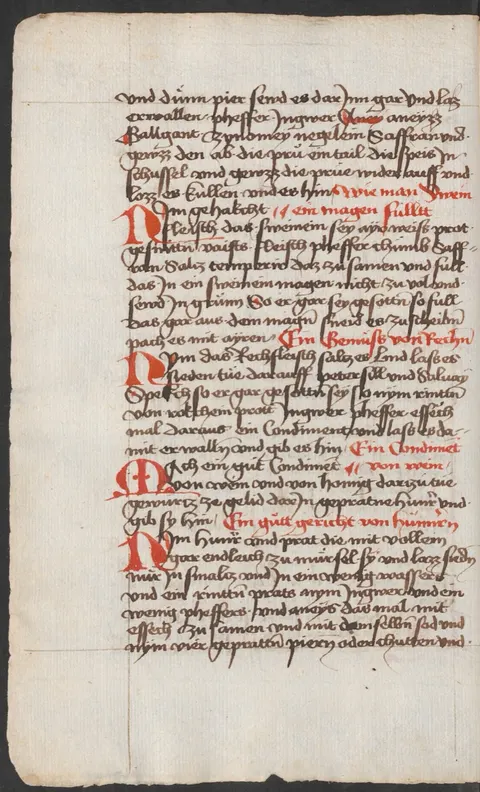 und dünn pier send es dar Inn gar und laz
erwallen pheffer Ingwer aneyzz
Gallgant zymomey negelein Saffran und
gewzz den ab die prü ein tail die speis In
schüssel und gewzz die prüe wider auff und
lazz es küllen und es hin Wie man Swein
Nim gehakcht ein magen fülltt
fleisch das sweinein sey ayr weiss prot
gesnittn vaists fleisch pheffer chümb Saff
ran Saltz temperir daz zu samen und füll
das In ein sweinein magen nicht zu vol und
send In grünn So er gar sey gesottn so füll
das gar aus dem magn sneid es zu scheibn
pach es mit ayren Ein Gemüss von Rechn
Nym das Rechfleisch saltz es und lass es
sieden tüe darauff petersill und Salvay
Spekch so er gar gesottn sey so nym rinttn
von rokchem prott Ingwer pheffer essech
mal daraus ein Condiment und lass es da
mit erwalln und gib es hin Ein Condimet
Mach ein gut Condimet von wein
von wein und von honig dartzu tüe
gewürtz ze gelid dar In gepratne hünr und
gib sy hin Ein gütt gericht von hünnrn
Nim hünr und prat die mit vollem
gar endleich zu mürsel sy und lazz siedn
nür In smaltz und In ein wenig wasser
und ein rinttn prats nym Ingwer und ein
wenig pheffers und aneys das mal mit
essech zu samen und mit dem selbn sod und
nym vier gepratn piern oder chutten und